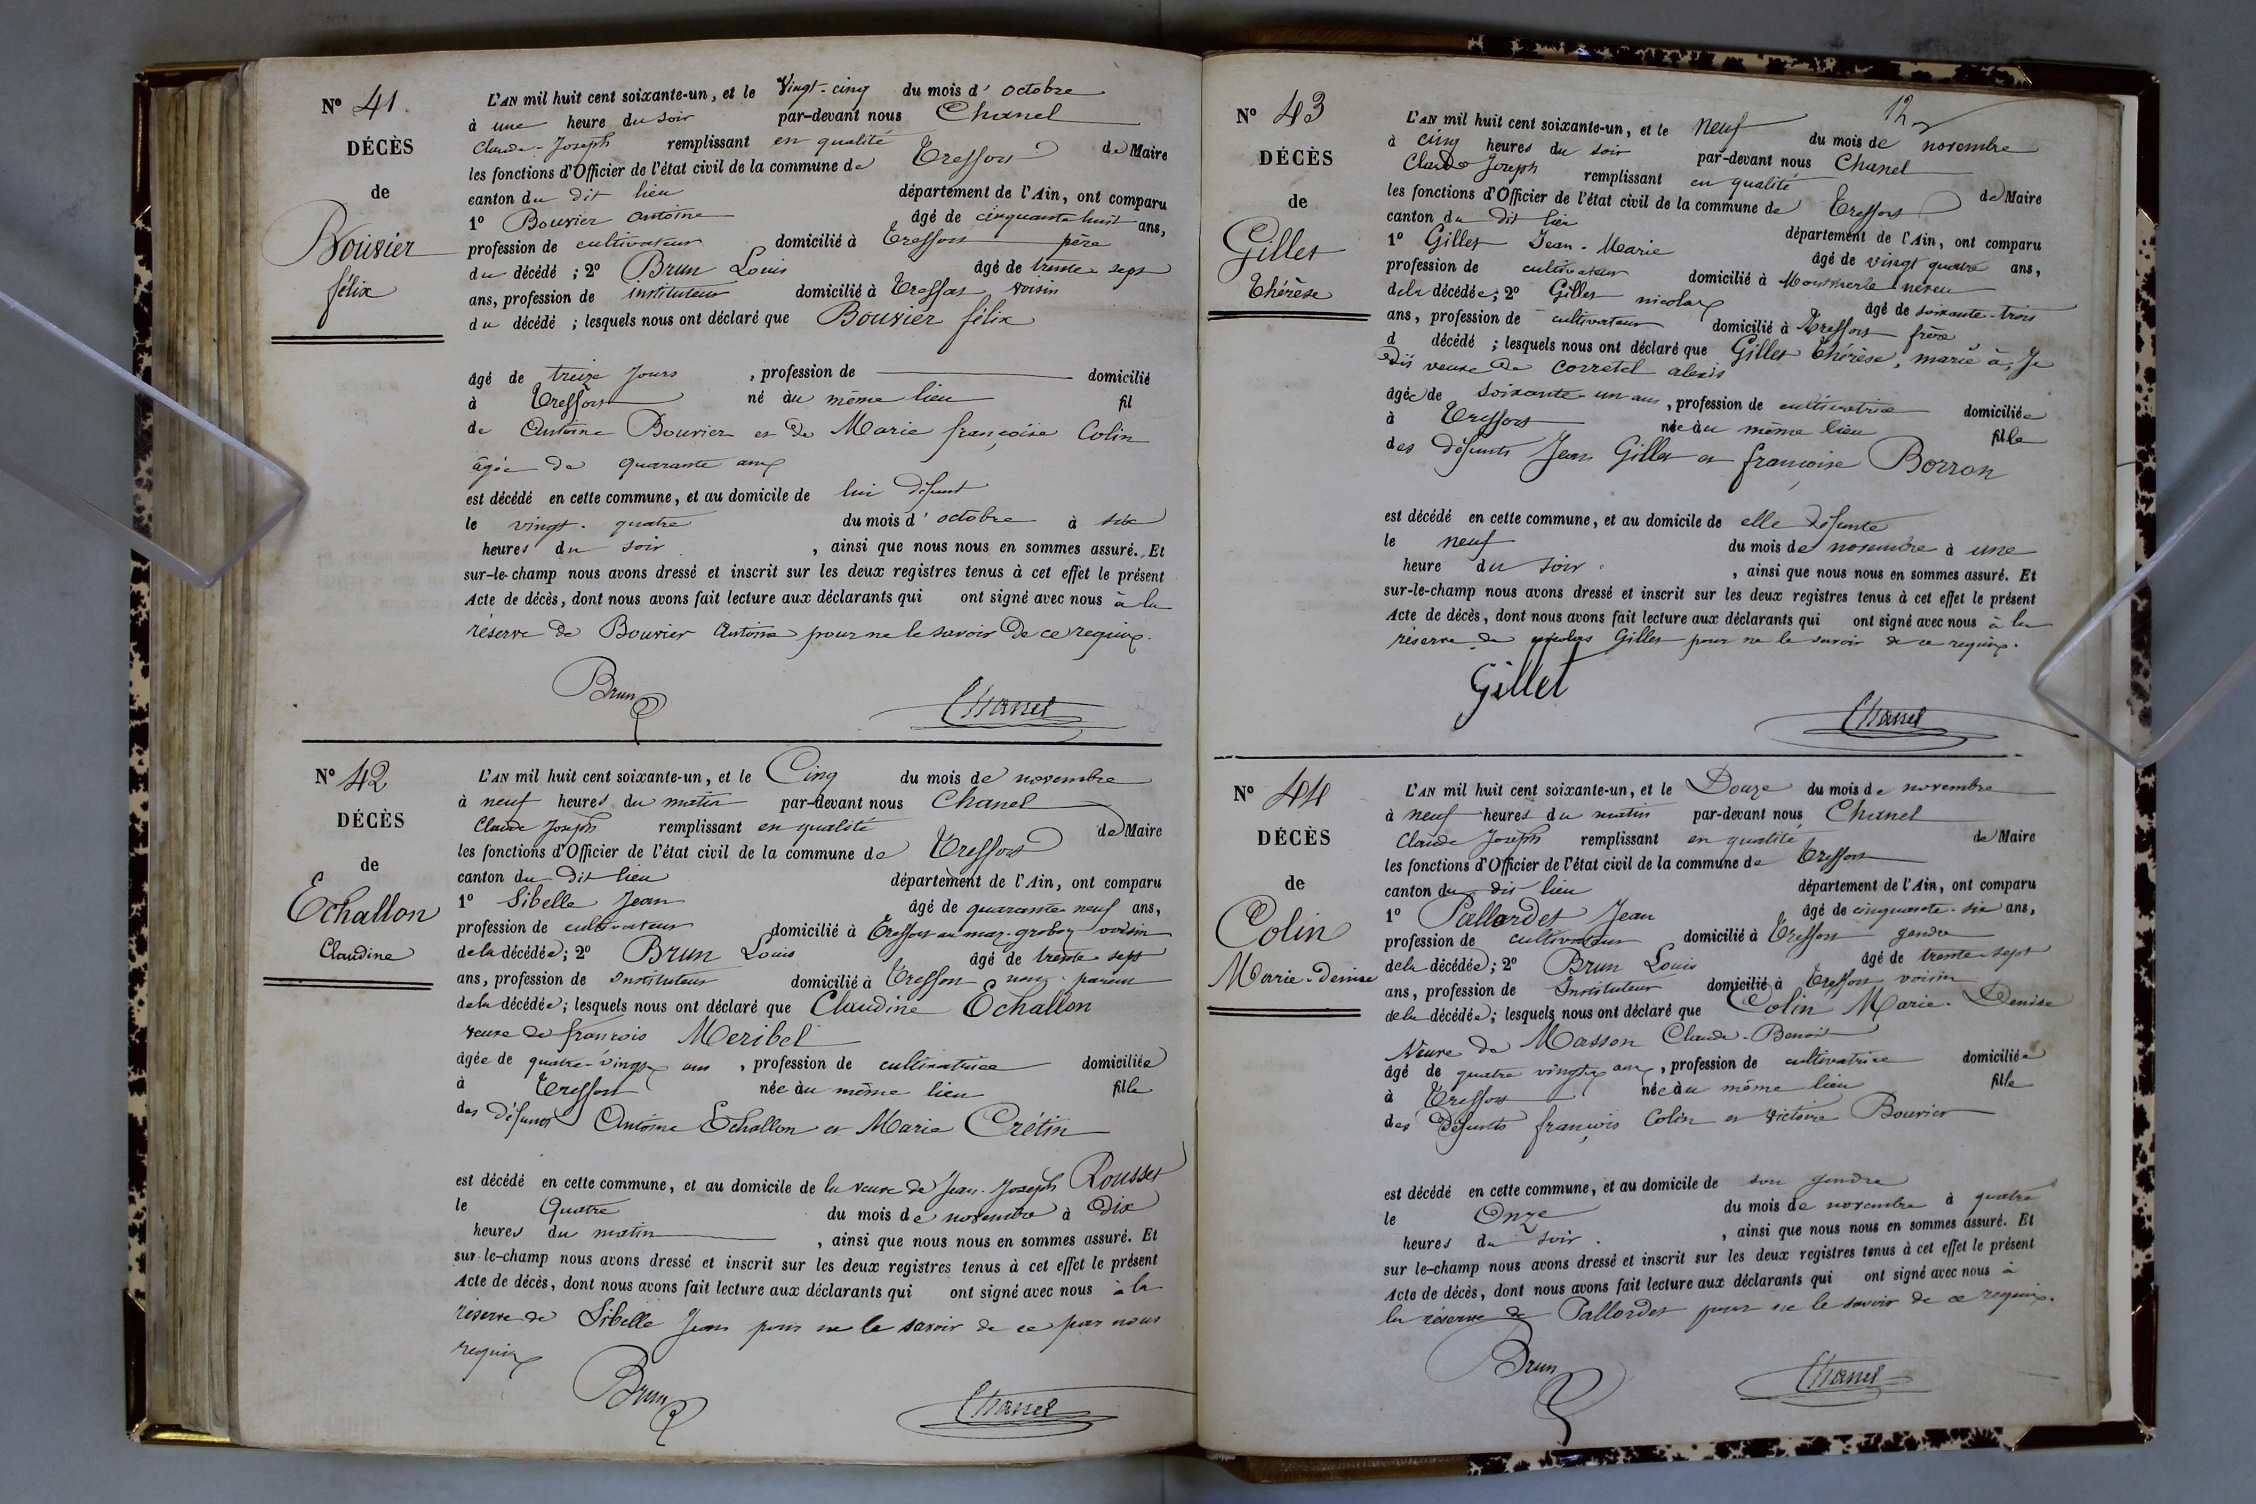 N° 41.
DÉCÈS
de
Bouvier
félix
L'AN mil huit cent soixante-un, et le Vingt-cinq du mois d'octobre
à une heure du soir par-devant nous Chanel
Claude-Joseph remplissant en qualité de Maire
les fonctions d'Officier de l'état civil de la commune de Treffort
canton du dit lieu département de l'Ain, ont comparu
1° Bouvier antoine âgé de cinquante huit ans,
profession de cultivateur domicilié à Treffort père
du décédé ; 2° Brun Louis âgé de trente sept
ans, profession de instituteur domicilié à Treffort voisin
du décédé ; lesquels nous ont déclaré que Bouvier félix
âgé de treize jours , profession de domicilié
à Treffort né au même lieu fil
de Antoine Bouvier et de Marie françoise Colin
âgée de quarante ans
est décédé en cette commune, et au domicile de lui défunt
le vingt-quatre du mois d'octobre à six
heures du soir , ainsi que nous nous en sommes assuré. Et
sur-le-champ nous avons dressé et inscrit sur les deux registres tenus à cet effet le présent
Acte de décès, dont nous avons fait lecture aux déclarants qui ont signé avec nous à la
réserve de Bouvier Antoine pour ne le savoir de ce requis.
Brun Chanel
N° 42
DÉCÈS
de
Echallon
Claudine
L'AN mil huit cent soixante-un, et le Cinq du mois de novembre
à neuf heures du matin par-devant nous Chanel
Claude Joseph remplissant en qualité de Maire
les fonctions d'Officier de l'état civil de la commune de Treffort
canton du Dit lieu département de l'Ain, ont comparu
1° Sibelle Jean âgé de quarante neuf ans,
profession de cultivateur domicilié à Treffort au maz-groboz voisin
de la décédée ; 2° Brun Louis âgé de trente sept
ans, profession de instituteur domicilié à Treffort non parent
de la décédée ; lesquels nous ont déclaré que Claudine Echallon
veuve de françois Meribel
âgée de quatre-vingts ans , profession de cultivatrice domiciliée
à Treffort née au même lieu fille
des défunts Antoine Echallon et Marie Crétin
est décédé en cette commune, et au domicile de la veuve de Jean-Joseph Rousset
le Quatre du mois de novembre à Dix
heures du matin , ainsi que nous nous en sommes assuré. Et
sur-le-champ nous avons dressé et inscrit sur les deux registres tenus à cet effet le présent
Acte de décès, dont nous avons fait lecture aux déclarants qui ont signé avec nous à la
réserve de Sibelle Jean pour ne le savoir de ce par nous
requis
Brun Chanel
12
N° 43
DÉCÈS
de
Gillet
Thérèse
L'AN mil huit cent soixante-un, et le neuf du mois de novembre
à cinq heures du soir par-devant nous Chanel
Claude Joseph remplissant en qualité de Maire
les fonctions d'Officier de l'état civil de la commune de Treffort
canton du dit lieu département de l'Ain, ont comparu
1° Gillet Jean-Marie âgé de vingt quatre ans,
profession de cultivateur domicilié à Montmerle neveu
de la décédée ; 2° Gillet nicolas âgé de soixante-trois
ans, profession de cultivateur domicilié à Treffort frère
d décédé ; lesquels nous ont déclaré que Gillet Thérèse, marié à, Je
dis veuve de Corretel alexis
âgée de soixante-un ans , profession de cultivatrice domiciliée
à Treffort née au même lieu fille
des défunts Jean Gillet et françoise Borron
est décédé en cette commune, et au domicile de elle défunte
le neuf du mois de novembre à une
heure du soir , ainsi que nous nous en sommes assuré. Et
sur-le-champ nous avons dressé et inscrit sur les deux registres tenus à cet effet le présent
Acte de décès, dont nous avons fait lecture aux déclarants qui ont signé avec nous à la
réserve de nicolas Gillet pour ne le savoir de ce requis.
Gillet
Chanel
N° 44
DÉCÈS
de
Colin
Marie-Denise
L'AN mil huit cent soixante-un, et le Douze du mois de novembre
à neuf heures du matin par-devant nous Chanel
Claude Joseph remplissant en qualité de Maire
les fonctions d'Officier de l'état civil de la commune de Treffort
canton du dit lieu département de l'Ain, ont comparu
1° Pallordet Jean âgé de cinquante-six ans,
profession de cultivateur domicilié à Treffort gendre
de la décédée ; 2° Brun Louis âgé de trente-sept
ans, profession de Instituteur domicilié à Treffort voisin
de la décédée ; lesquels nous ont déclaré que Colin Marie-Denise
Veuve de Masson Claude-Benoit
âgé de quatre vingts ans , profession de cultivatrice domiciliée
à Treffort née au même lieu fille
des Défunts françois Colin et victoire Bouvier
est décédé en cette commune, et au domicile de son gendre
le Onze du mois de novembre à quatre
heures du soir , ainsi que nous nous en sommes assuré. Et
sur le-champ nous avons dressé et inscrit sur les deux registres tenus à cet effet le présent
Acte de décès, dont nous avons fait lecture aux déclarants qui ont signé avec nous à
la réserve de Pallordet pour ne le savoir de ce requis.
Brun Chanel